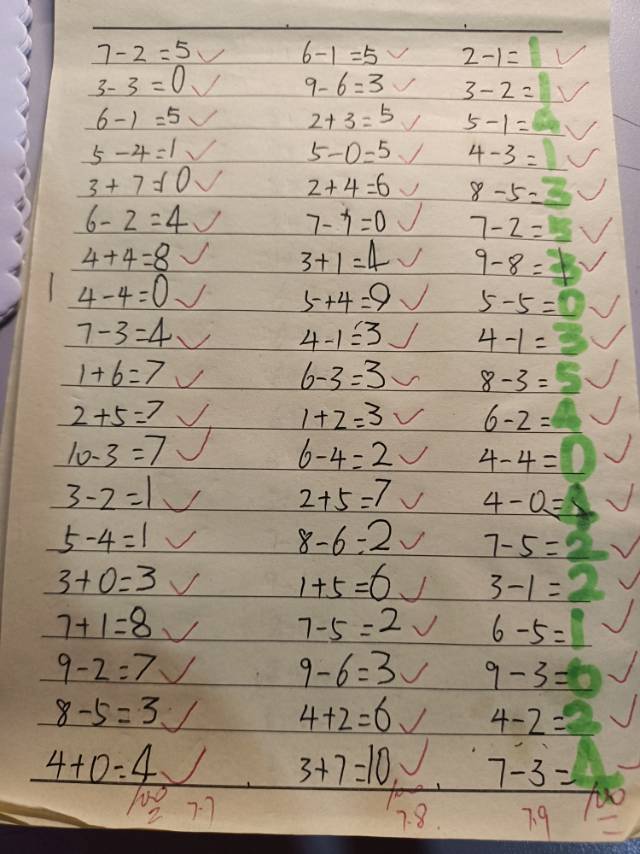 7-2=5✓ 6-1=5✓ 2-1=1✓
3-3=0✓ 9-6=3✓ 3-2=1✓
6-1=5✓ 2+3=5✓ 5-1=4✓
5-4=1✓ 5-0=5✓ 4-3=1✓
3+7=10✓ 2+4=6✓ 8-5=3✓
6-2=4✓ 7-7=0✓ 7-2=5✓
4+4=8✓ 3+1=4✓ 9-8=1✓
4-4=0✓ 5+4=9✓ 5-5=0✓
7-3=4✓ 4-1=3✓ 4-1=3✓
1+6=7✓ 6-3=3✓ 8-3=5✓
2+5=7✓ 1+2=3✓ 6-2=4✓
10-3=7✓ 6-4=2✓ 4-4=0✓
3-2=1✓ 2+5=7✓ 4-0=4✓
5-4=1✓ 8-6=2✓ 7-5=2✓
3+0=3✓ 1+5=6✓ 3-1=2✓
7+1=8✓ 7-5=2✓ 6-5=1✓
9-2=7✓ 9-6=3✓ 9-3=6✓
8-5=3✓ 4+2=6✓ 4-2=2✓
4+0=4✓ 3+7=10✓ 7-3=4✓
100 7.7 100 7.8. 7.9 100